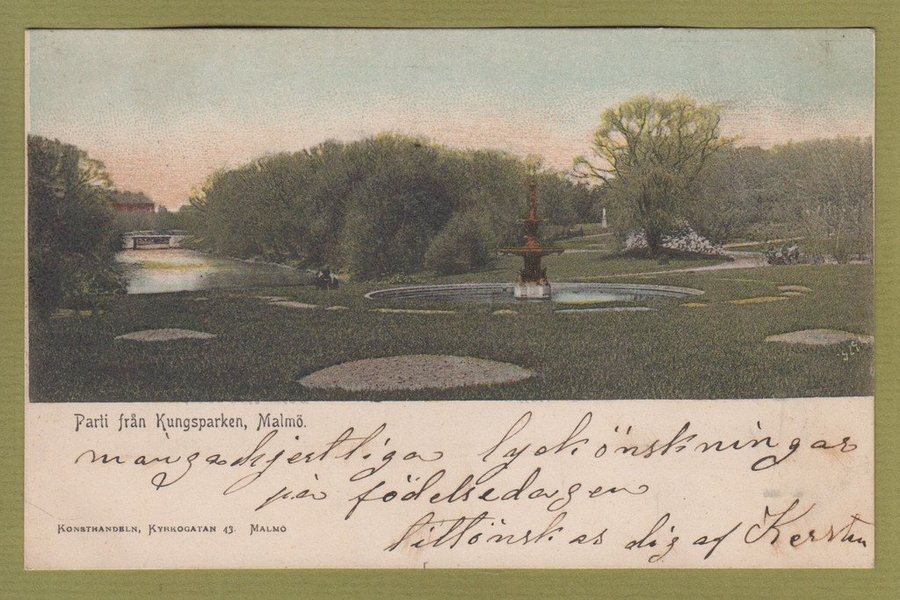 Parti från Kungsparken, Malmö.
mångahjertliga lyckönskningar
på födelsedagen
KONSTHANDELN, KYRKOGATAN 43. MALMÖ
tillönskas dig af Kerstin